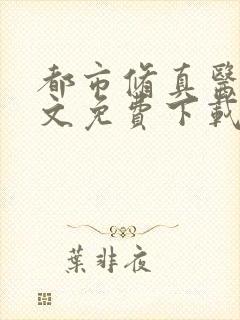 都市脩真醫
文免費下載
葉非夜